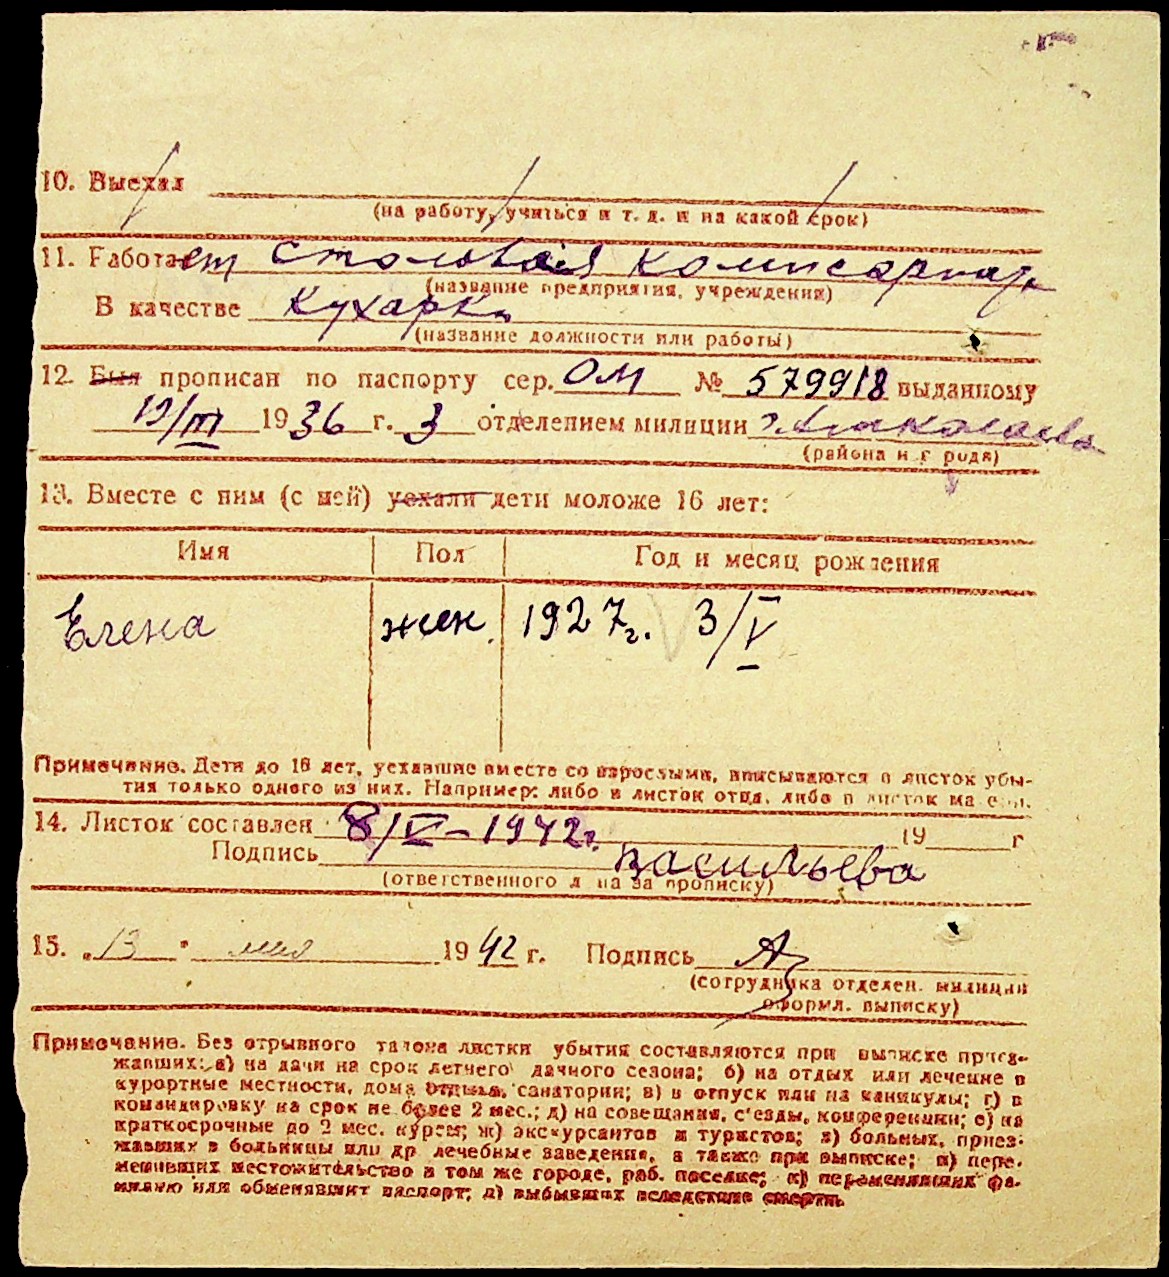 10. Выехал
(на работу, учиться и т. д. и на какой срок)
11. Работает столовая комисариат
(название предприятия, учреждения)
В качестве Кухарка
(название должности или работы)
12. Был прописан по паспорту сер. ОМ № 579918 выданному
19/III 1936 г. 3 отделением милиции г.
(района и г рода)
13. Вместе с ним (с ней) уехали дети моложе 16 лет:
Имя Пол Год и месяц рождения
Елена жен. 1927г. 3/V
Примечание. Дети до 16 лет, уехавшие вместе со взрослыми, вписываются в листок убы-
тия только одного из них. Например: либо в листок отца, либо в листок ма е и.
14. Листок составлен 8/V-1942г. 19 г
Подпись Васильева
(ответственного л ца за прописку)
15. „13" мая 1942 г. Подпись
(сотрудника отделен. милиции
оформл. выписку)
Примечание. Без отрывного талона листки убытия составляются при выписке приез-
жавших: а) на дачи на срок летнего дачного сезона; б) на отдых или лечение в
курортные местности, дома отдыха, санатории; в) в отпуск или на каникулы; г) в
командировку на срок не более 2 мес.; д) на совещания, с'езды, конференции; е) на
краткосрочные до 2 мес. курсы; ж) экскурсантов и туристов; з) больных, приез-
жавших в больницы или др лечебные заведения, а также при выписке; и) пере-
менивших местожительство в том же городе, раб. поселке; к) переменивших фа-
милию или обменявшит паспорт; л) выбывших вследствие смерти.